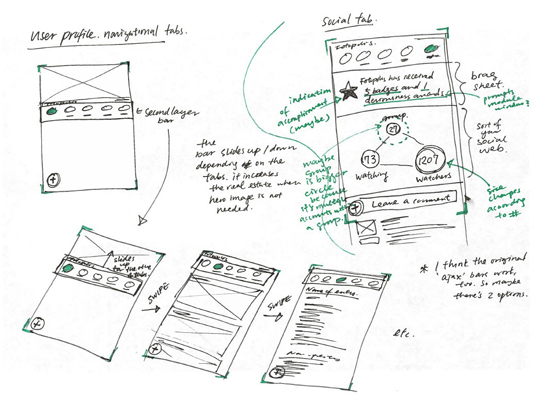 User profile. navigational tabs.
← second layer
bar
the
bar slides up / down
depending on the
tabs. it increases
the real estate where
hero image is not
needed.
slides
up
SWIPE
SWIPE
Name of entree.
etc.
Social tab.
Fotopolis has received
5 badges and 1
indication
of
accomplishment
(maybe)
brag
sheet.
prompts
modular
window?
sort of
your
social
web.
group
29
73
Watching
1207
Watchers
maybe
group
is bigger
circle
because
it's multiple
accounts within
a group.
size
changes
according
to #
Leave a comment
* I think the original
'ajax' bars work,
too. so maybe
there's 2 options.